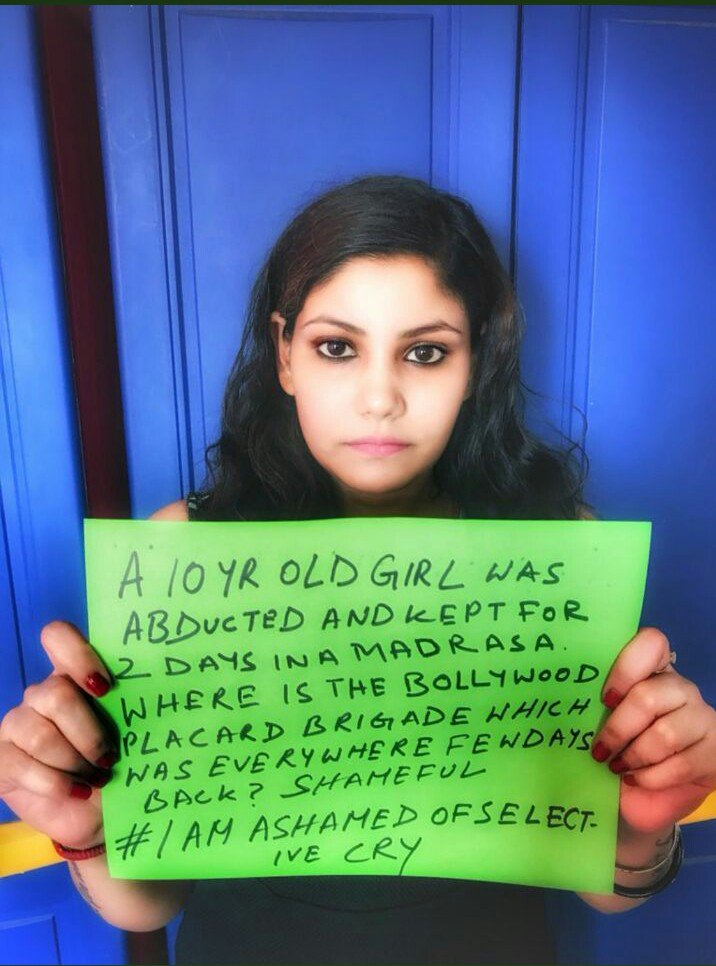 A 10 YR OLD GIRL WAS
ABDUCTED AND KEPT FOR
2 DAYS IN A MADRASA.
WHERE IS THE BOLLYWOOD
PLACARD BRIGADE WHICH
WAS EVERYWHERE FEW DAYS
BACK? SHAMEFUL
#I AM ASHAMED OF SELECT-
IVE CRY